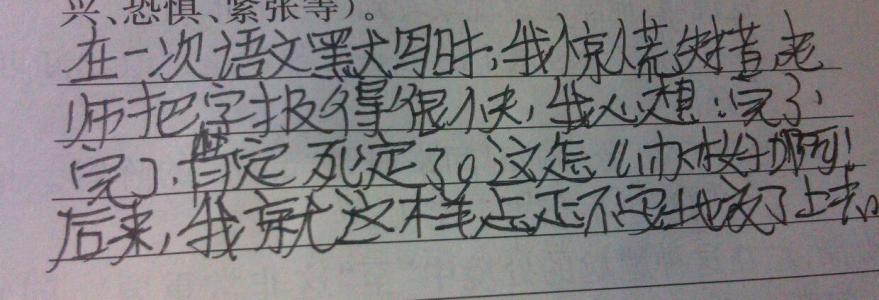 兴、恐惧、紧张等)。
在一次语文默写时,我惊慌失措,老
师把字报得很快,我心想:完了,
完了,肯定死定了。这怎么办才好啊!
后来,我就这样忐忑不安地交了上去。